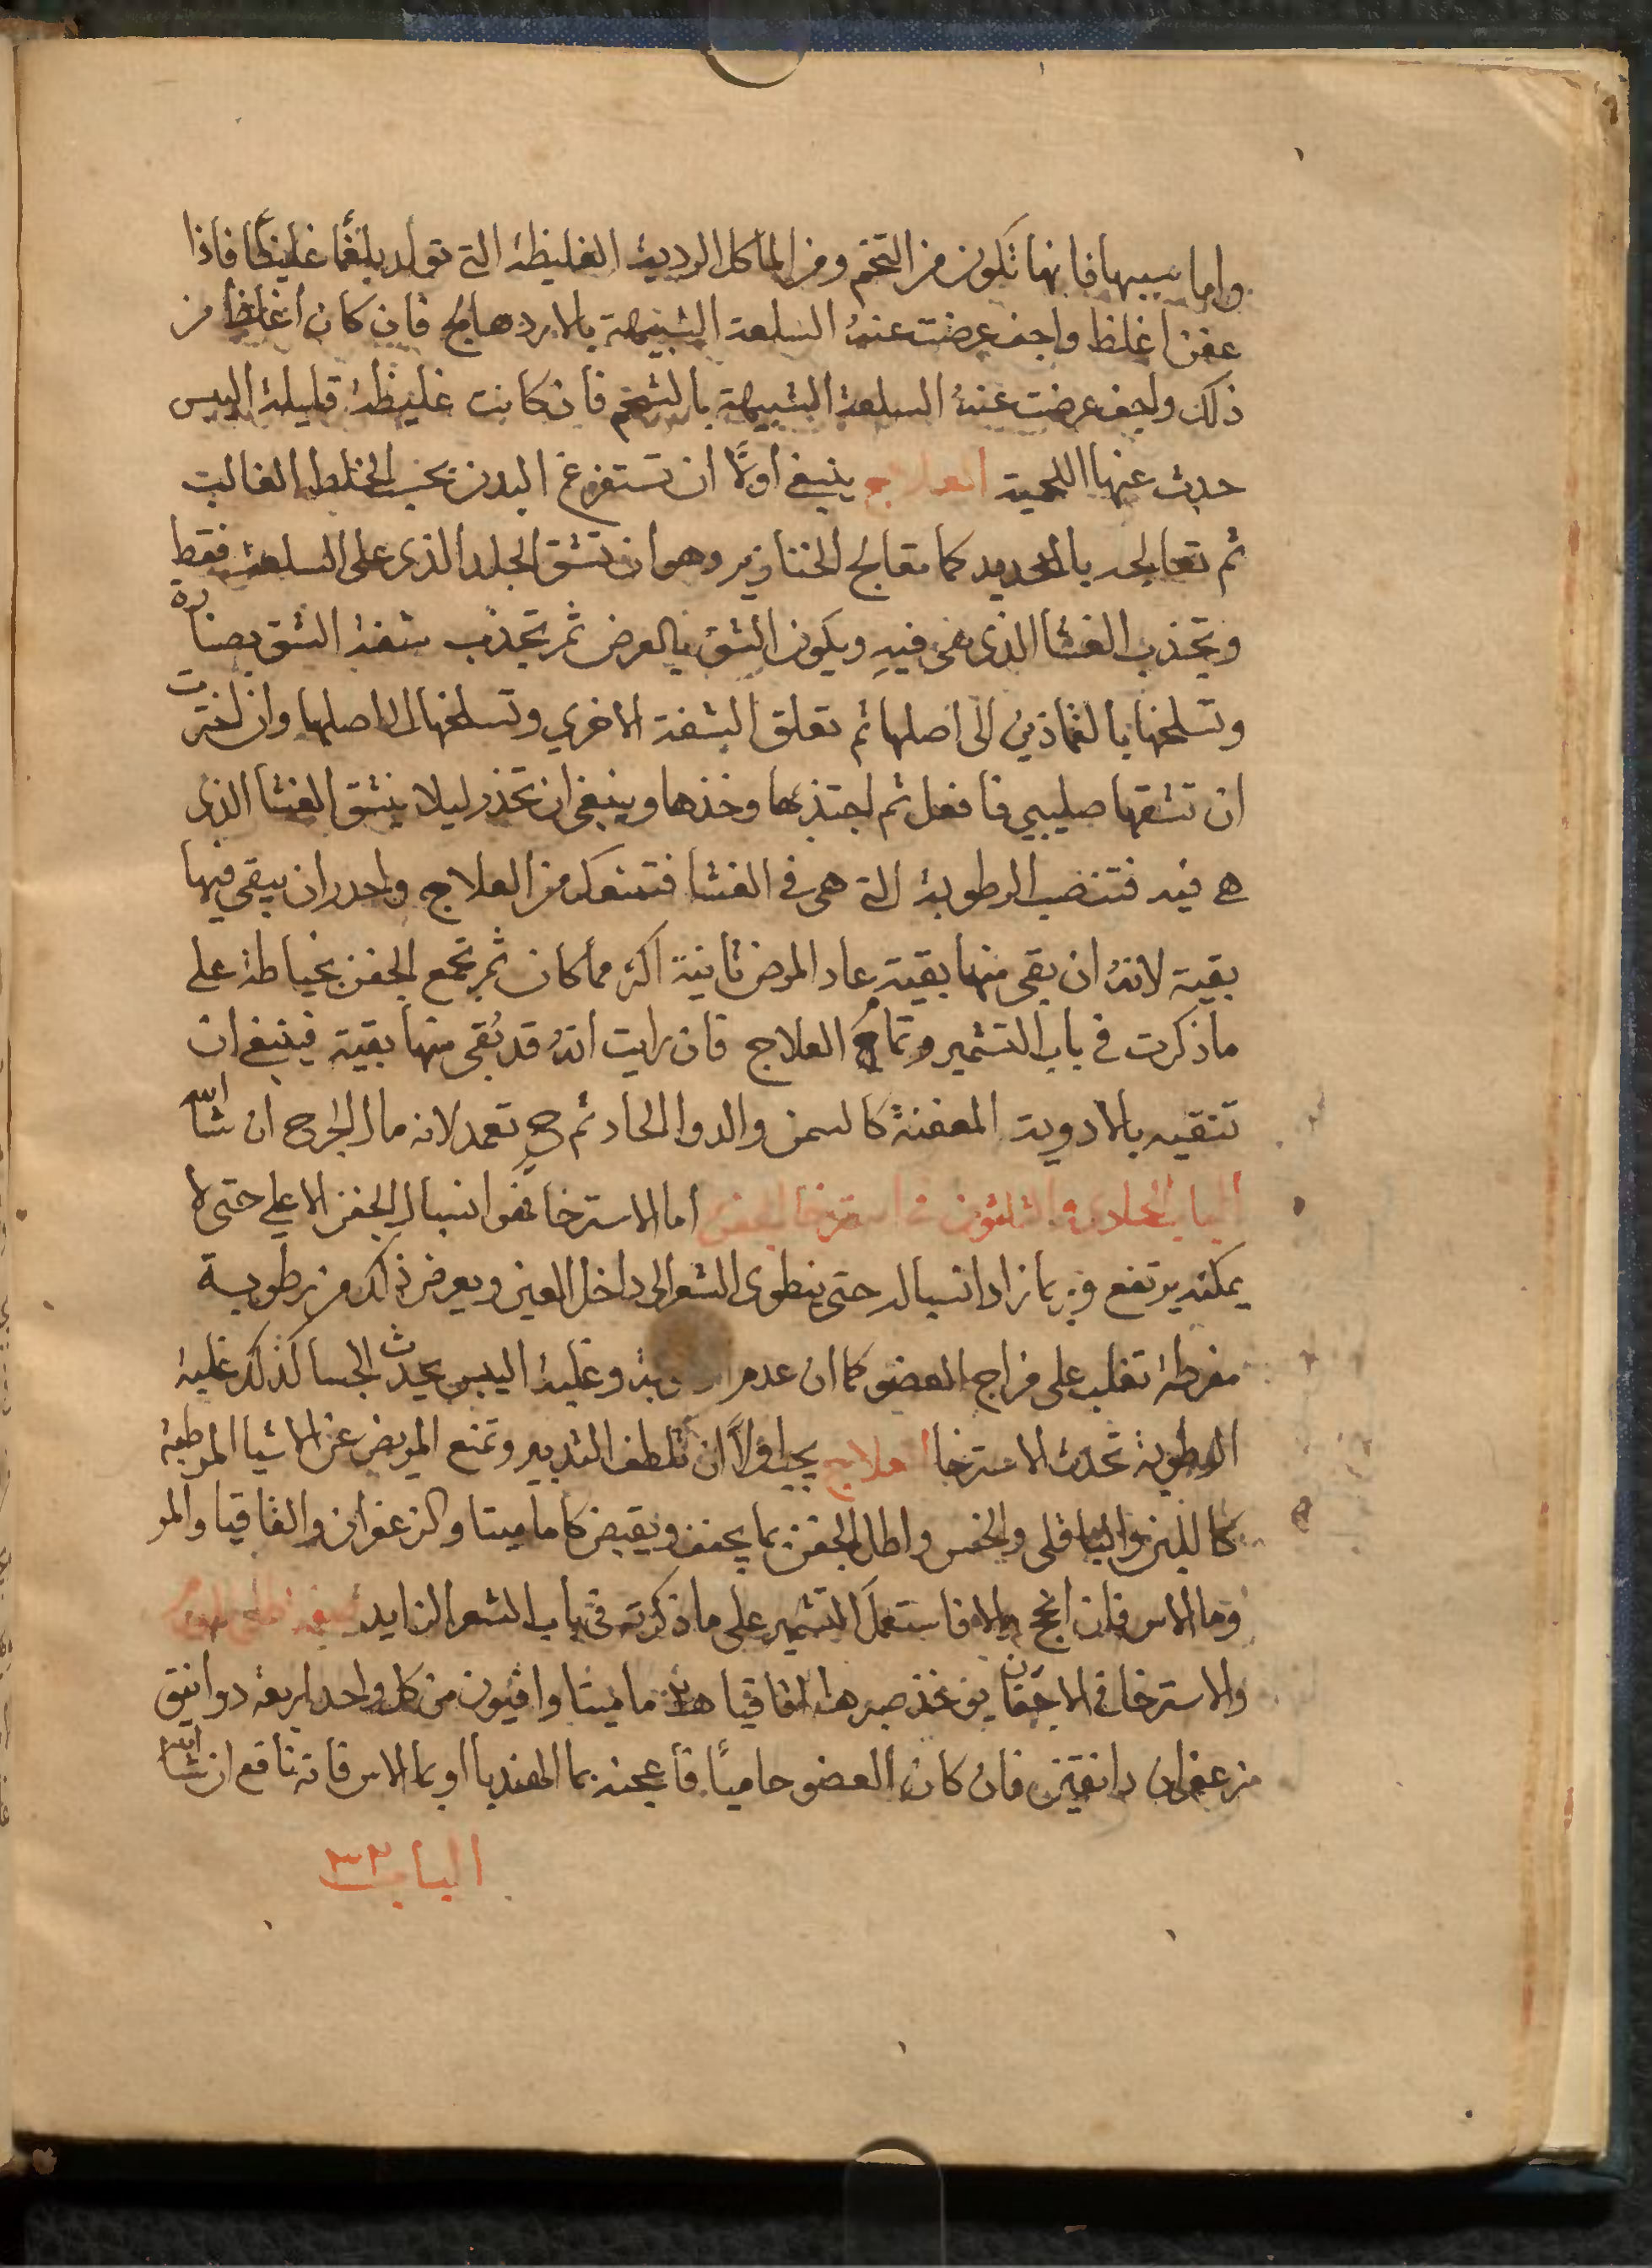 واما سببها فانها تكون من التخم ومن الماكل الردية الغليظة التي تولد بلغمًا غليظًا فاذا
عفن اغلظ واجف عرضت عنهُ السلعة الشبيهة بالاردهالج فان كان اغلظ من
ذلك واجف عرضت عنهُ السلعة الشبيهة بالشحم فان كانت غليظة قليلة اليبس
حدث عنها اللحمية العلاج ينبغي اولًا ان تستفرغ البدن بحسب الخلط الغالب
ثم تعالجه بالحديد كما تعالج الخنازير وهو ان تشق الجلد الذي على السلعة فقط
وتجذب الغشا الذي هي فيهِ ويكون الشق بالعرض ثم تجذب شفة الشق بصنارة
وتسلخها بالغماذين الى اصلها ثم تعلق الشفة الاخري وتسلخها الى اصلها وان اخترت
ان تشقها صليبي فافعل ثم اجتذبها وخذها وينبغي ان تحذر ليلا ينشق الغشا الذي
هي فيه فتنصب الرطوبة التي هي في الغشا فتمنعك من العلاج واحدر ان يبقي فيها
بقية لانهُ ان بقي منها بقية عاد المرض ثانية اكثر مما كان ثم تجمع الجفن بخياطة على
ما ذكرت في باب التشمير وتمام العلاج فان رايت انهُ قد بُقي منها بقية فينبغي ان
تنقيه بالادوية المعفنة كالسمن والدوا الحاد ثم تعمد لاندمال الجرح ان شا الله
الباب الحادي والثلثون في استرخا الجفن اما الاسترخا فهو انسبال الجفن الاعلي حتى لا
يمكنه يرتفع وربما زاد انسباله حتى ينطوى الشعر الى داخل العين ويعرض ذلك من رطوبة
مفرطة تغلب على مزاج العضو كما ان عدم وغلبة اليبس يحدث الجسا كذلك غلبة
الرطوبة تحدث الاسترخا العلاج يجب اولًا ان تلطف التدبير وتمنع المريض عن الاشيا المرطبة
كاللبن والباقلى والخس واطل الجفن بما يجفف ويقبض كالماميتا والزعفران والقاقيا والمر
وما الاس فان انجح والا فاستعمل التشمير على ما ذكرته في باب الشعر الزايد
والاسترخا في الاجفان يوخذ صبر قاقيا ماميتا وافيون من كل واحد اربعة دوانيق
زعفران دانقين فان كان العضو حاميًا فاعجنه بما الهندبا او بما الاس فانه نافع ان شا الله
الباب ٣٢